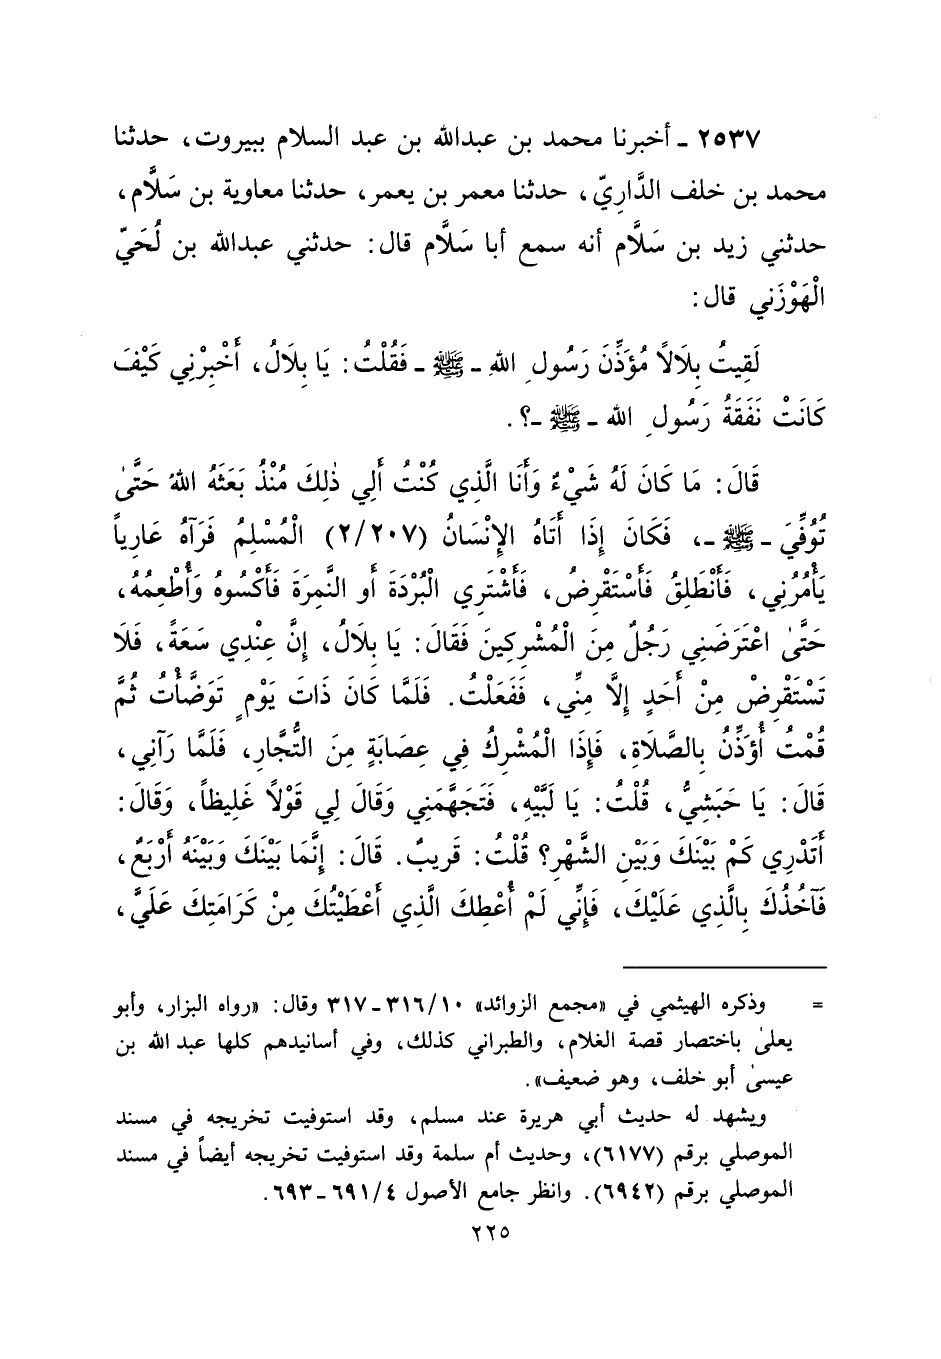 ٢٥٣٧ ـ أخبرنا محمد بن عبدالله بن عبد السلام ببيروت، حدثنا
محمد بن خلف الدَّارِيّ، حدثنا معمر بن يعمر، حدثنا معاوية بن سَلَّام،
حدثني زيد بن سَلَّام أنه سمع أبا سَلَّام قال: حدثني عبدالله بن لُحَيّ
الْهَوْزَني قال:
لَقِيتُ بِلَالاً مُؤَذِّنَ رَسُولِ اللهِ ـ ﷺ ـ فَقُلْتُ: يَا بِلَالُ، أَخْبِرْنِي كَيْفَ
كَانَتْ نَفَقَةُ رَسُولِ اللهِ ـ ﷺ ـ؟.
قَالَ: مَا كَانَ لَهُ شَيْءٌ وَأَنَا الَّذِي كُنْتُ أَلِي ذٰلِكَ مُنْذُ بَعَثَهُ اللهُ حَتَّىٰ
تُوُفِّيَ ـ ﷺ ـ، فَكَانَ إِذَا أَتَاهُ الإِنْسَانُ (٢/٢٠٧) الْمُسْلِمُ فَرَآهُ عَارِياً
يَأْمُرُنِي، فَأَنْطَلِقُ فَأَسْتَقْرِضُ، فَأَشْتَرِي الْبُرْدَةَ أَو النَّمِرَةَ فَأَكْسُوهُ وَأُطْعِمُهُ،
حَتَّىٰ اعْتَرَضَنِي رَجُلٌ مِنَ الْمُشْرِكِينَ فَقَالَ: يَا بِلَالُ، إِنَّ عِنْدِي سَعَةً، فَلَا
تَسْتَقْرِضْ مِنْ أَحَدٍ إِلَّا مِنِّي، فَفَعَلْتُ. فَلَمَّا كَانَ ذَاتَ يَوْمٍ تَوَضَّأْتُ ثُمَّ
قُمْتُ أُؤَذِّنُ بِالصَّلَاةِ، فَإِذَا الْمُشْرِكُ فِي عِصَابَةٍ مِنَ التُّجَّارِ، فَلَمَّا رَآنِي،
قَالَ: يَا حَبَشِيُّ، قُلْتُ: يَا لَبَّيْهِ، فَتَجَهَّمَنِي وَقَالَ لِي قَوْلاً غَلِيظاً، وَقَالَ:
أَتَدْرِي كَمْ بَيْنَكَ وَبَيْنَ الشَّهْرِ؟ قُلْتُ: قَرِيبٌ. قَالَ: إِنَّمَا بَيْنَكَ وَبَيْنَهُ أَرْبَعٌ،
فَآخُذُكَ بِالَّذِي عَلَيْكَ، فَإِنِّي لَمْ أُعْطِكَ الَّذِي أَعْطَيْتُكَ مِنْ كَرَامَتِكَ عَلَيَّ،
= وذكره الهيثمي في «مجمع الزوائد» ٣١٦/١٠ ـ ٣١٧ وقال: «رواه البزار، وأبو
يعلىٰ باختصار قصة الغلام، والطبراني كذلك، وفي أسانيدهم كلها عبد الله بن
عيسىٰ أبو خلف، وهو ضعيف».
ويشهد له حديث أبي هريرة عند مسلم، وقد استوفيت تخريجه في مسند
الموصلي برقم (٦١٧٧)، وحديث أم سلمة وقد استوفيت تخريجه أيضاً في مسند
الموصلي برقم (٦٩٤٢). وانظر جامع الأصول ٦٩١/٤ ـ ٦٩٣.
٢٢٥